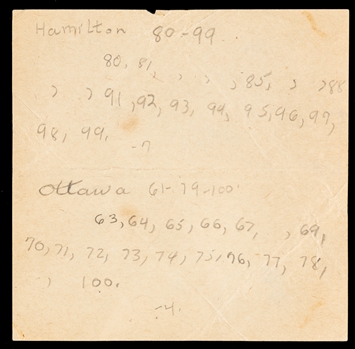 Hamilton 80-99.
80, 81, , , , , 85, , , 88
, , 91, 92, 93, 94, 95, 96, 97,
98, 99.
-7
Ottawa 61-79-100.
63, 64, 65, 66, 67, , 69,
70, 71, 72, 73, 74, 75, 76, 77, 78,
, 100.
-4.